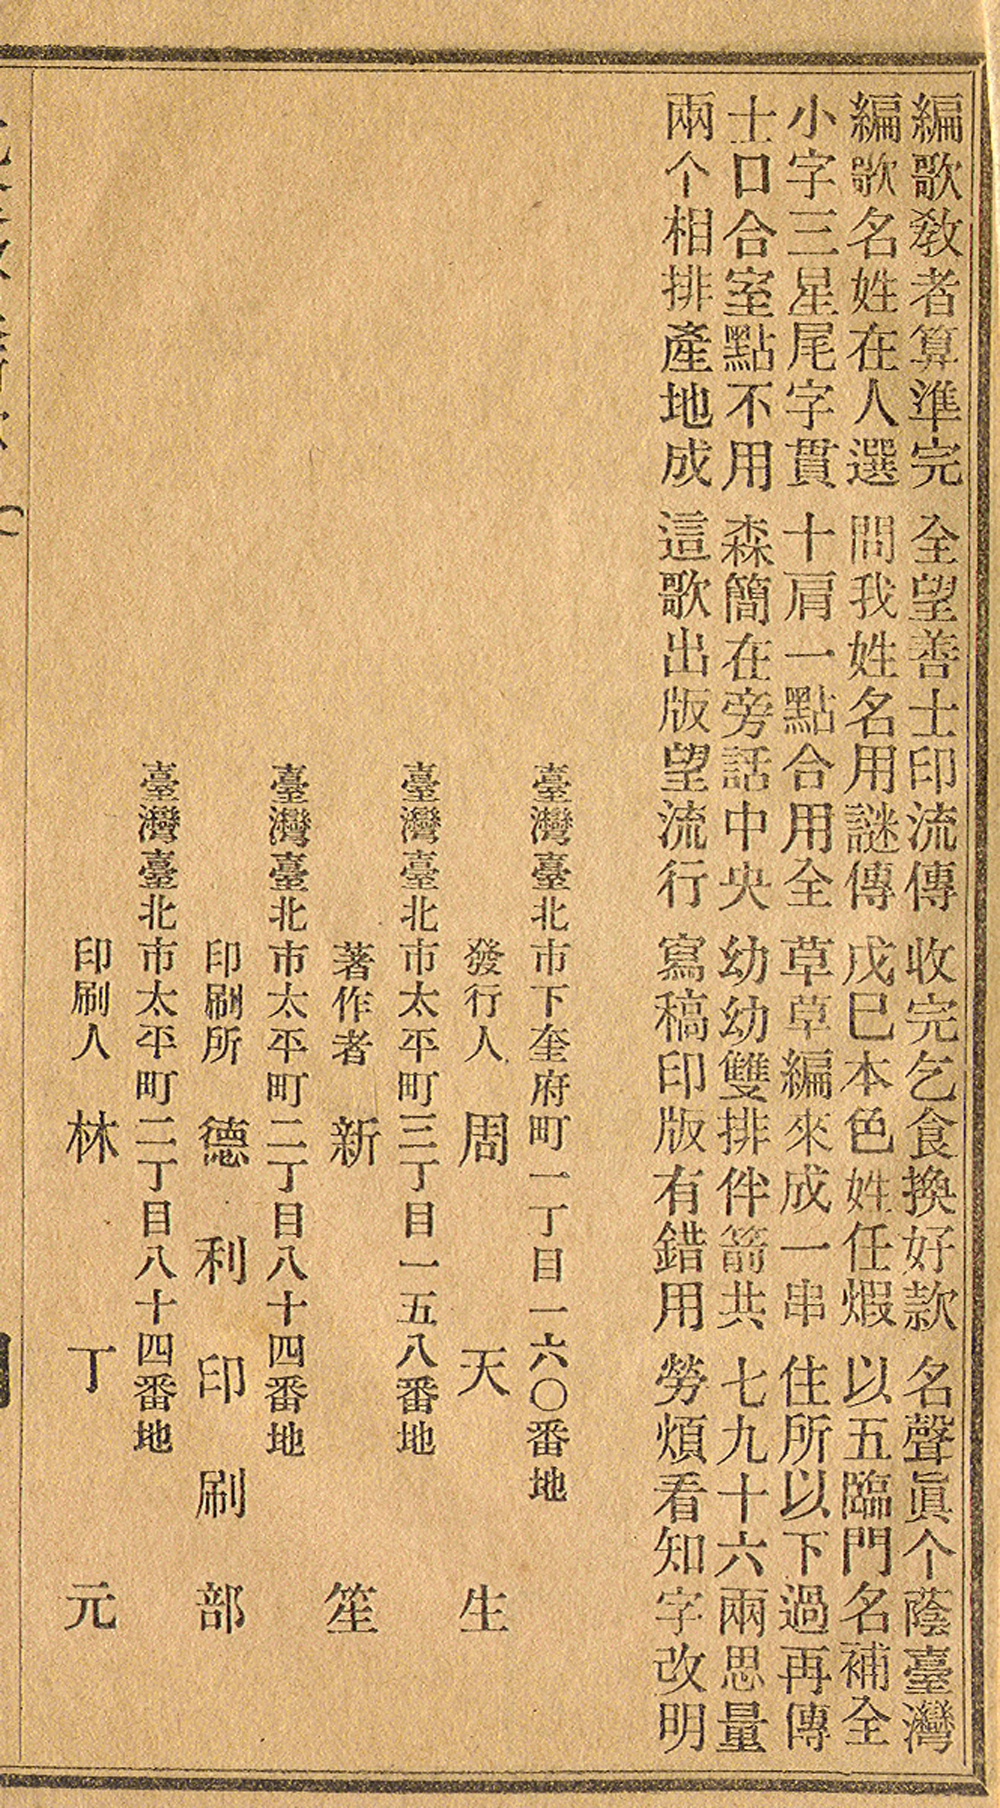 編歌敎者算準完　全望善士印流傳　收完乞食換好款　名聲眞个蔭臺灣
編歌名姓在人選　問我姓名用謎傳　戊巳本色姓任煆　以五臨門名補全
小字三星尾字貫　十肩一點合用全　草草編來成一串　住所以下過再傳
士口合室點不用　森簡在旁話中央　幼幼雙排伴箭共　七九十六兩思量
兩个相排產地成　這歌出版望流行　寫稿印版有錯用　勞煩看知字改明
臺灣臺北市下奎府町一丁目一六〇番地
發行人　周天生
臺灣臺北市太平町三丁目一五八番地
著作者　新笙
臺灣臺北市太平町二丁目八十四番地
印刷所　德利印刷部
臺灣臺北市太平町二丁目八十四番地
印刷人　林丁元